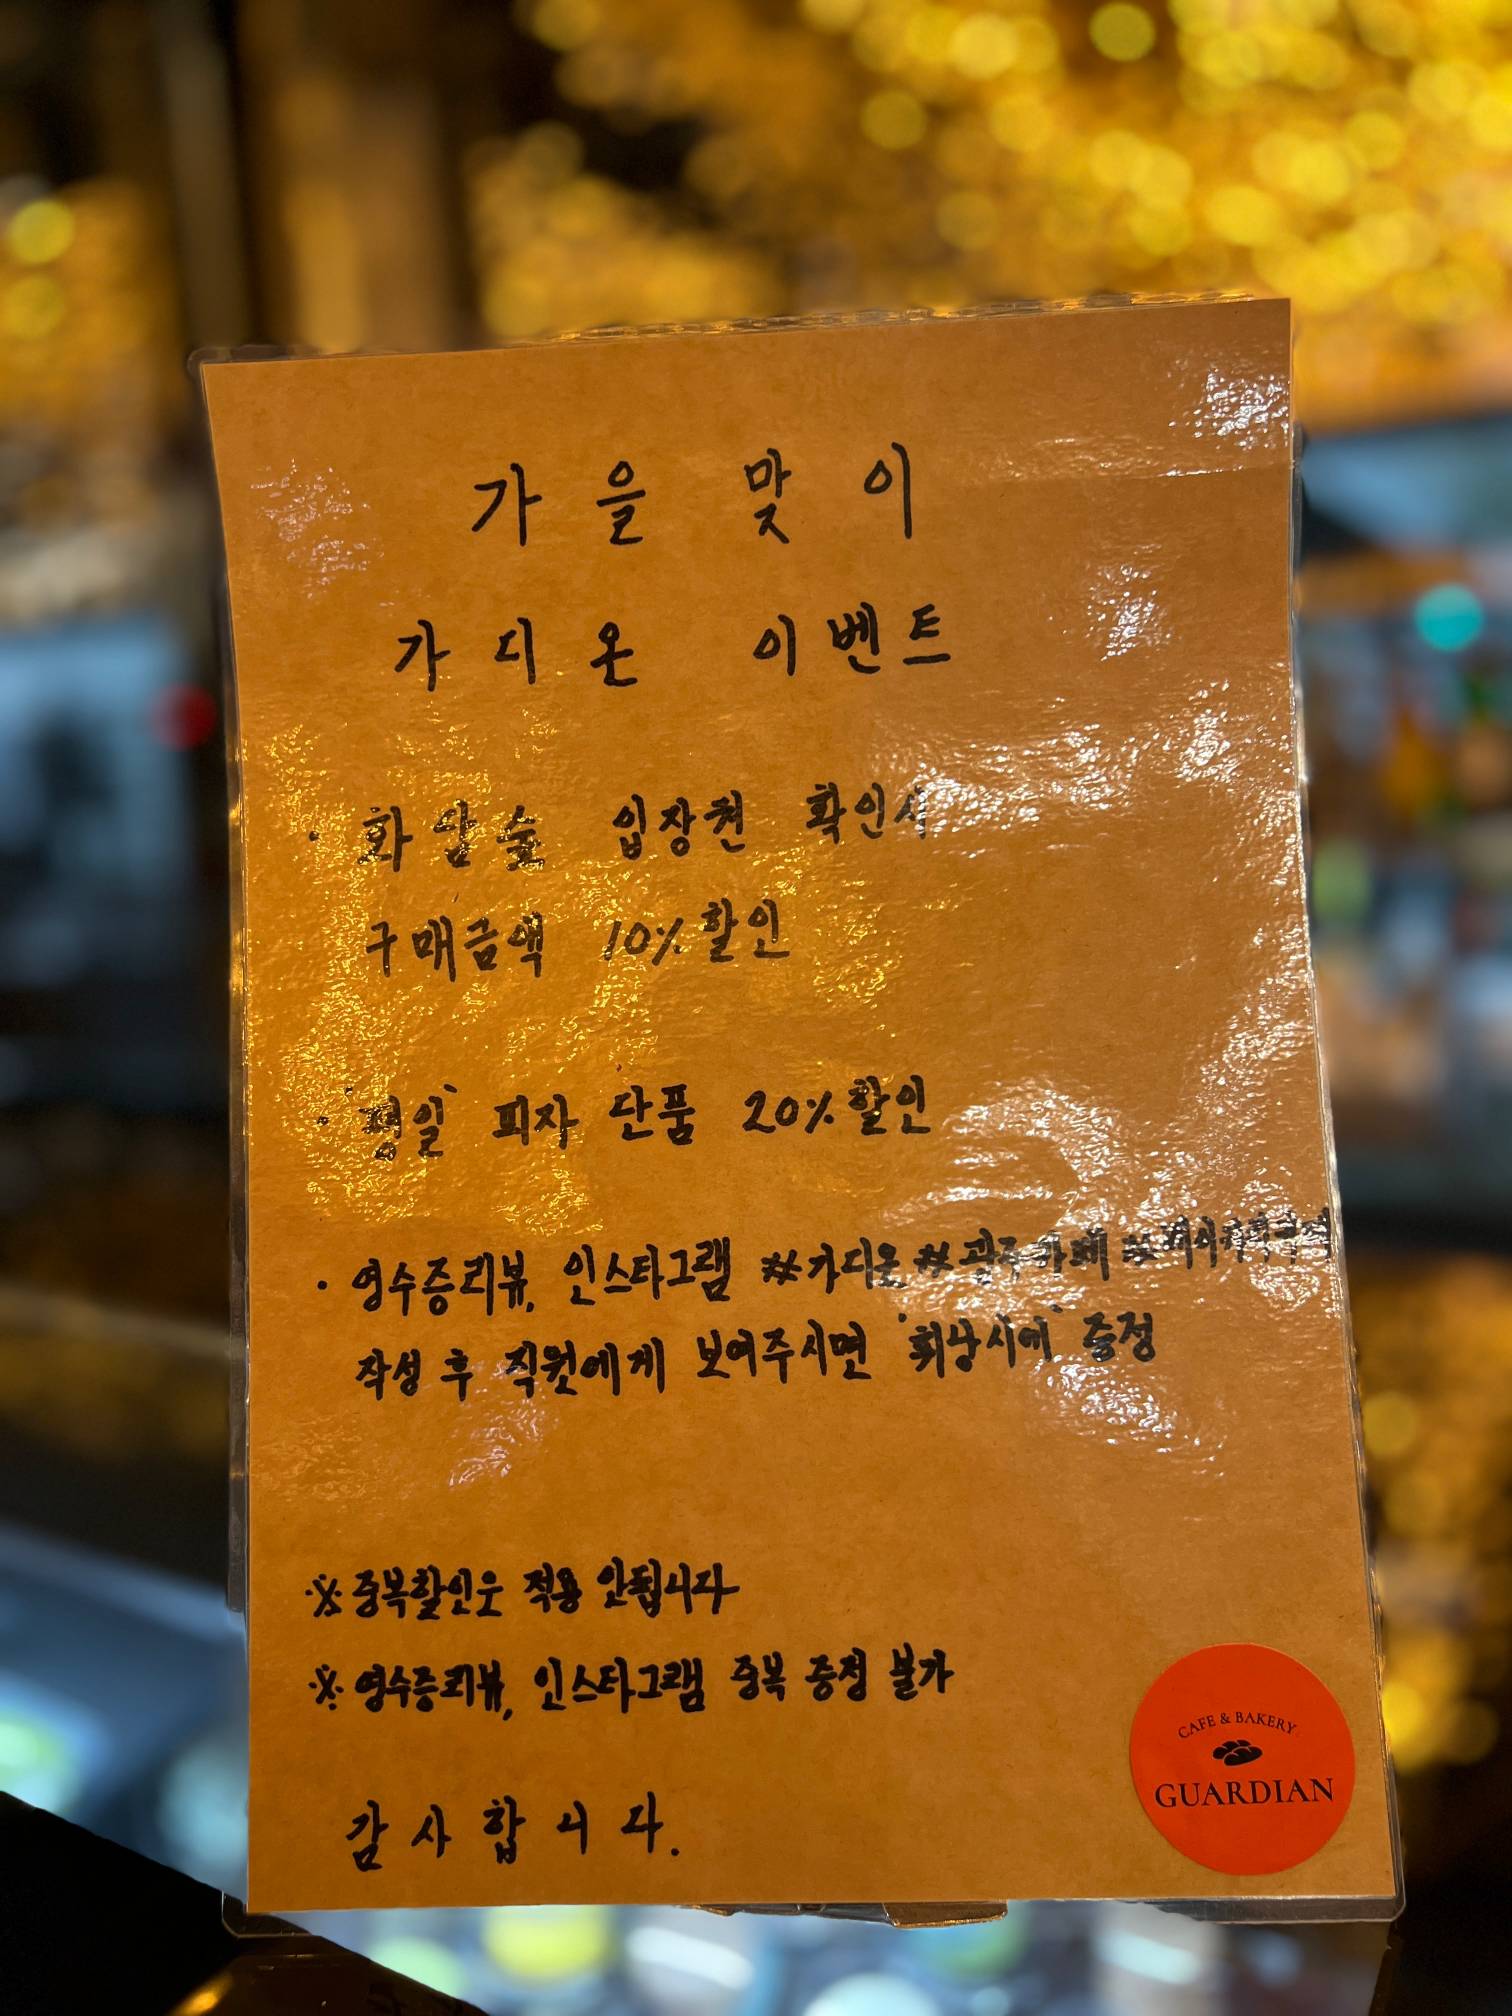 가을 맞이
가디온 이벤트
· 화담숲 입장권 확인시
구매금액 10% 할인
· '평일' 피자 단품 20% 할인
· 영수증리뷰, 인스타그램 #가디온 #광주카페
작성 후 직원에게 보여주시면 '휘낭시에' 증정
※ 중복할인은 적용 안됩니다
※ 영수증리뷰, 인스타그램 중복 증정 불가
감사합니다.
CAFE & BAKERY
GUARDIAN